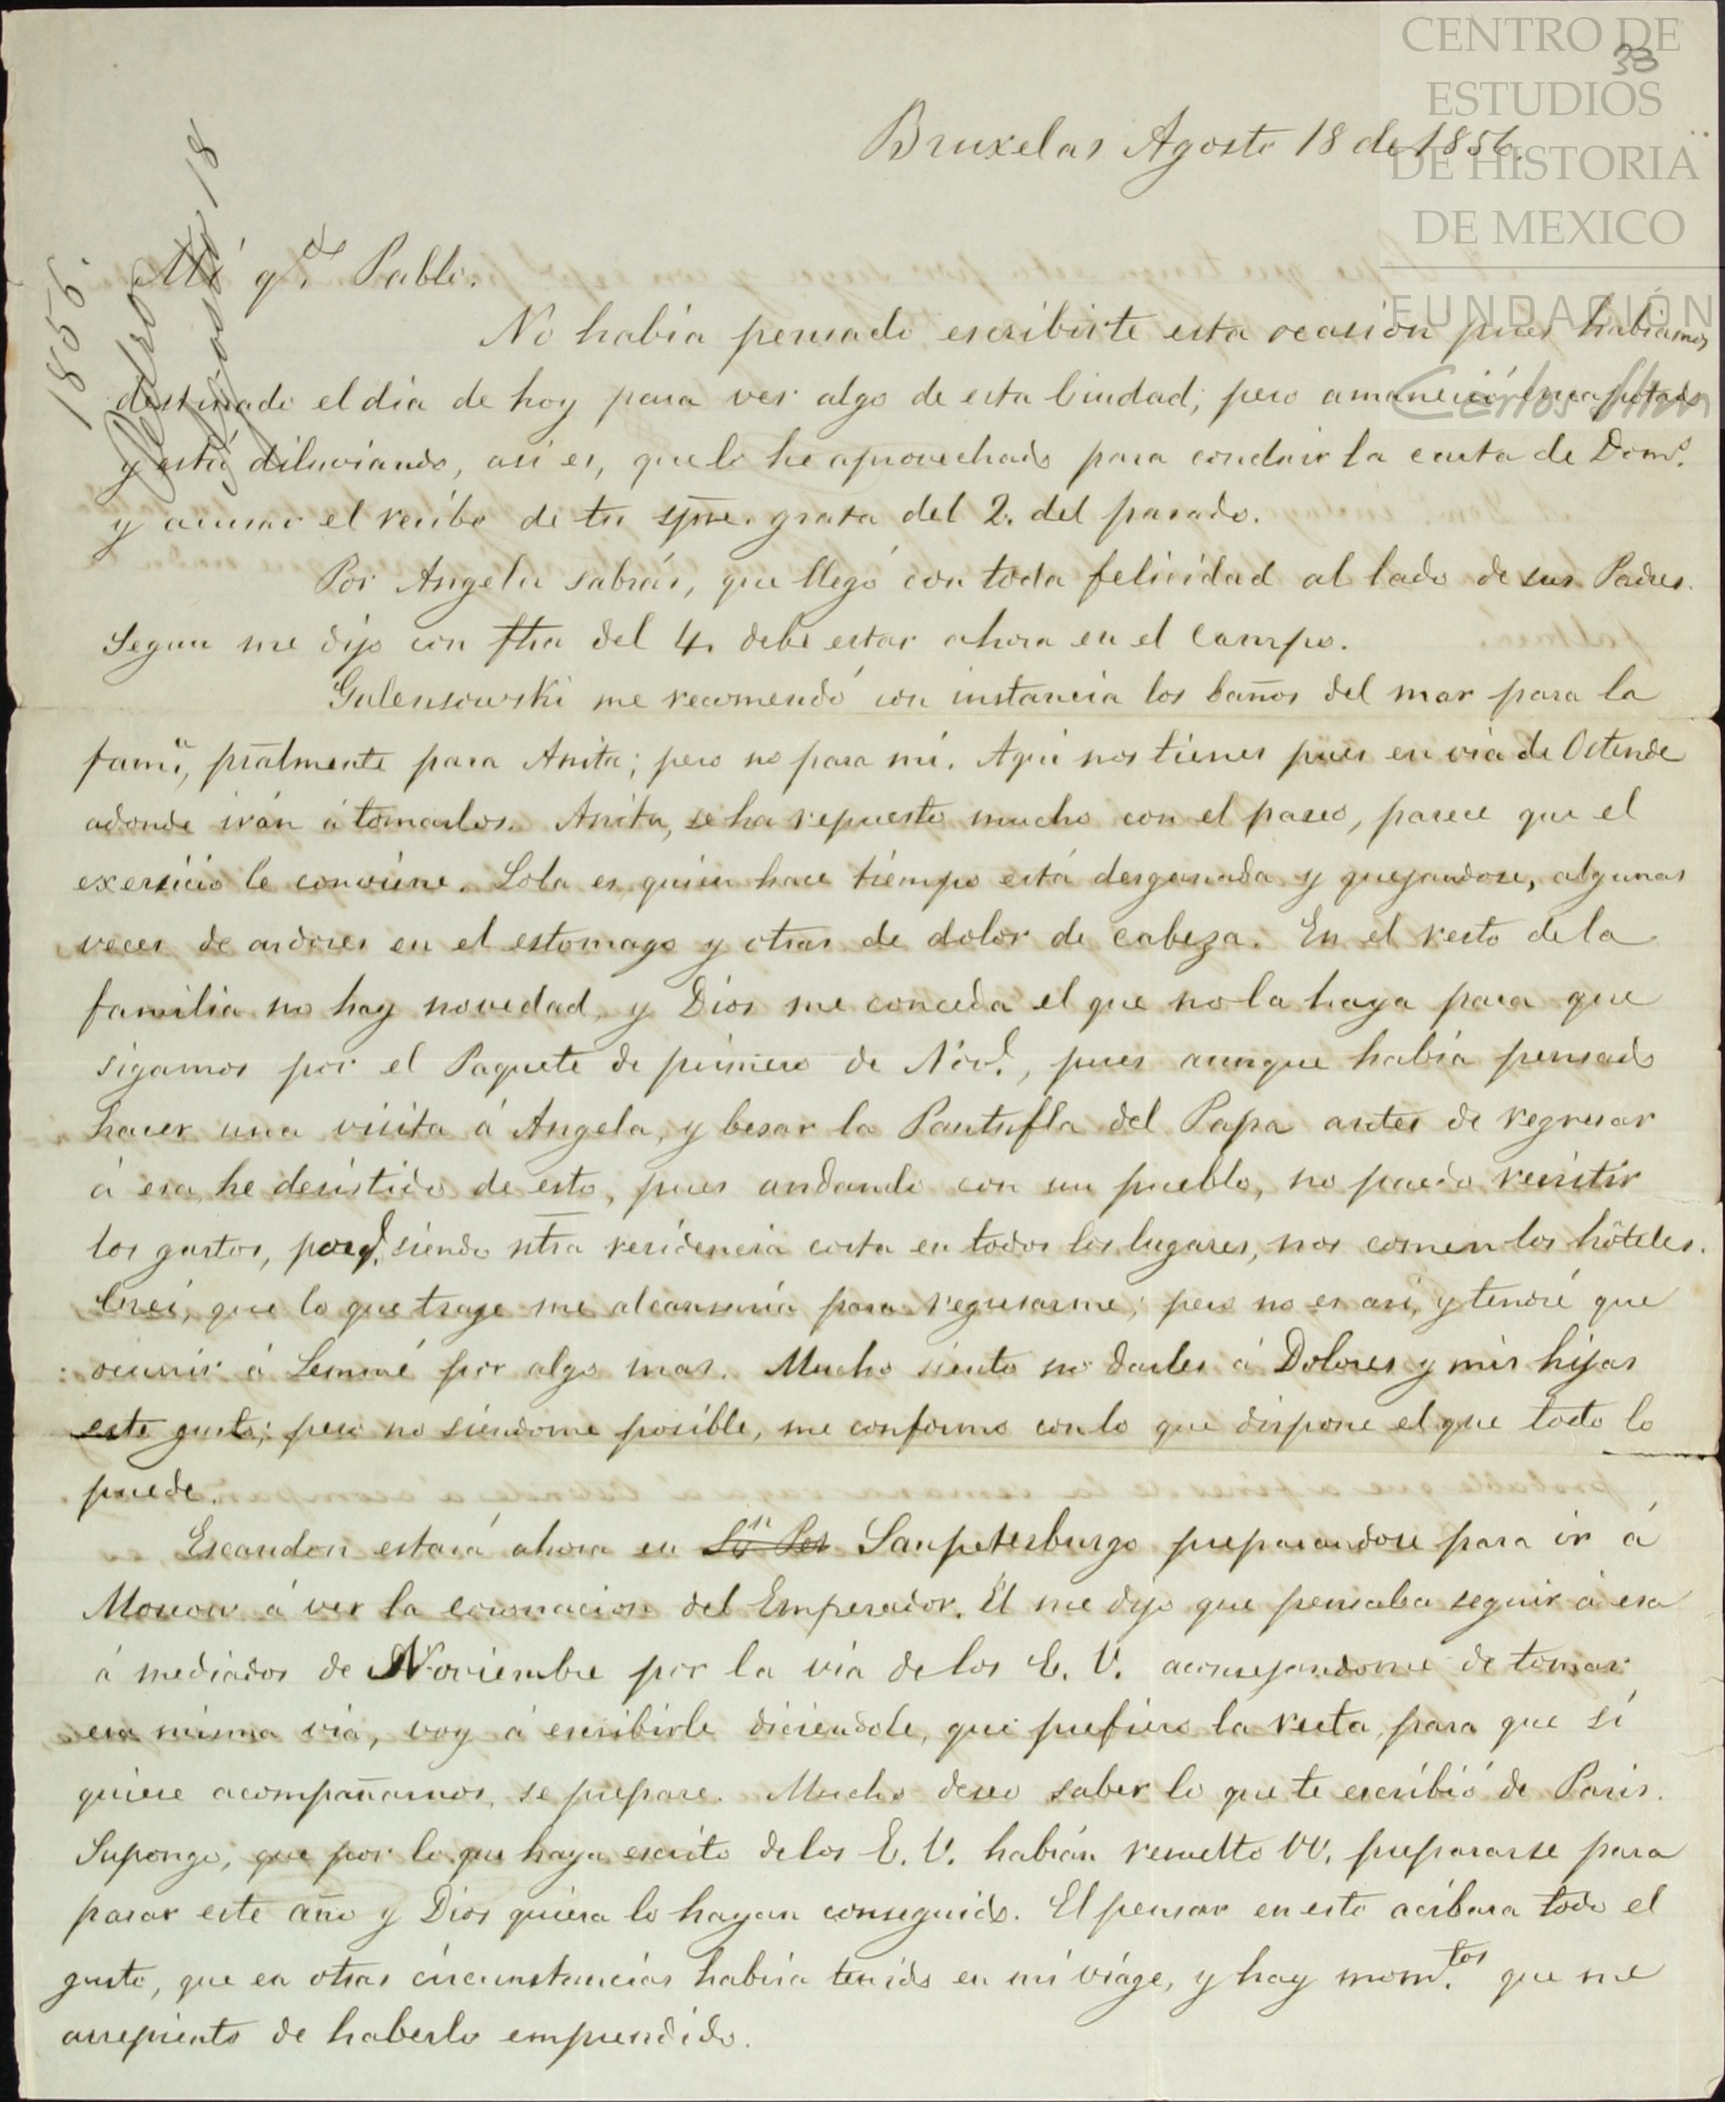 CENTRO DE
ESTUDIOS
DE HISTORIA
DE MEXICO
FUNDACIÓN
Carlos Slim
33
Bruxelas Agosto 18 de 1856.
1856.
Agosto 18
Mi q.do Pablo.
No habia pensado escribirte esta ocasion pues habiamos
destinado el dia de hoy para ver algo de esta Ciudad; pero amaneció encapotado
y está diluviando, asi es, que lo he aprovechado para concluir la carta de Dom.o
y acusar el recibo de tu spre. grata del 2. del pasado.
Por Angela sabrás, que llegó con toda felicidad al lado de sus Padres.
Segun me dijo con fha del 4. debe estar ahora en el Campo.
Galensowski me recomendó con instancia los baños del mar para la
fam.a, pralmente para Anita; pero no para mi. Aqui nos tienes pues en via de Ostende
adonde irán á tomarlos. Anita, se ha repuesto mucho con el paseo, parece que el
exersicio le conviene. Lola es quien hace tiempo está desganada y quejandose, algunas
veces de ardores en el estomago y otras de dolor de cabeza. En el resto de la
familia no hay novedad, y Dios me conceda el que no la haya para que
sigamos por el Paquete de primero de Nov.e, pues aunque habia pensado
hacer una visita á Angela, y besar la Pantufla del Papa antes de regresar
á esa, he desistido de esto, pues andando con un pueblo, no puedo resistir
los gastos, porq.e siendo ntra residencia corta en todos los lugares, nos comen los hôteles.
Crei, que lo que traje me alcansaria para regresarme; pero no es asi, y tendré que
ocurrir á Lemmé por algo mas. Mucho siento no darles á Dolores y mis hijas
este gusto; pero no siendome posible, me conformo con lo que dispone el que todo lo
puede.
Escandon estará ahora en Sn Pet Sanpetesburgo preparandose para ir á
Moscow á ver la coronacion del Emperador. El me dijo que pensaba seguir á esa
á mediados de Noviembre por la via de los E. U. aconsejandome de tomar
esa misma via, voy á escribirle diciendole, que prefiero la recta, para que si
quiere acompañarnos, se prepare. Mucho deseo saber lo que te escribió de Paris.
Supongo, que por lo que haya escrito de los E. U. habrán resuelto VV. prepararse para
pasar este año y Dios quiera lo hayan conseguido. El pensar en esto acibara todo el
gusto, que en otras circunstancias habria tenido en mi viage, y hay mom.tos que me
arrepiento de haberlo emprendido.